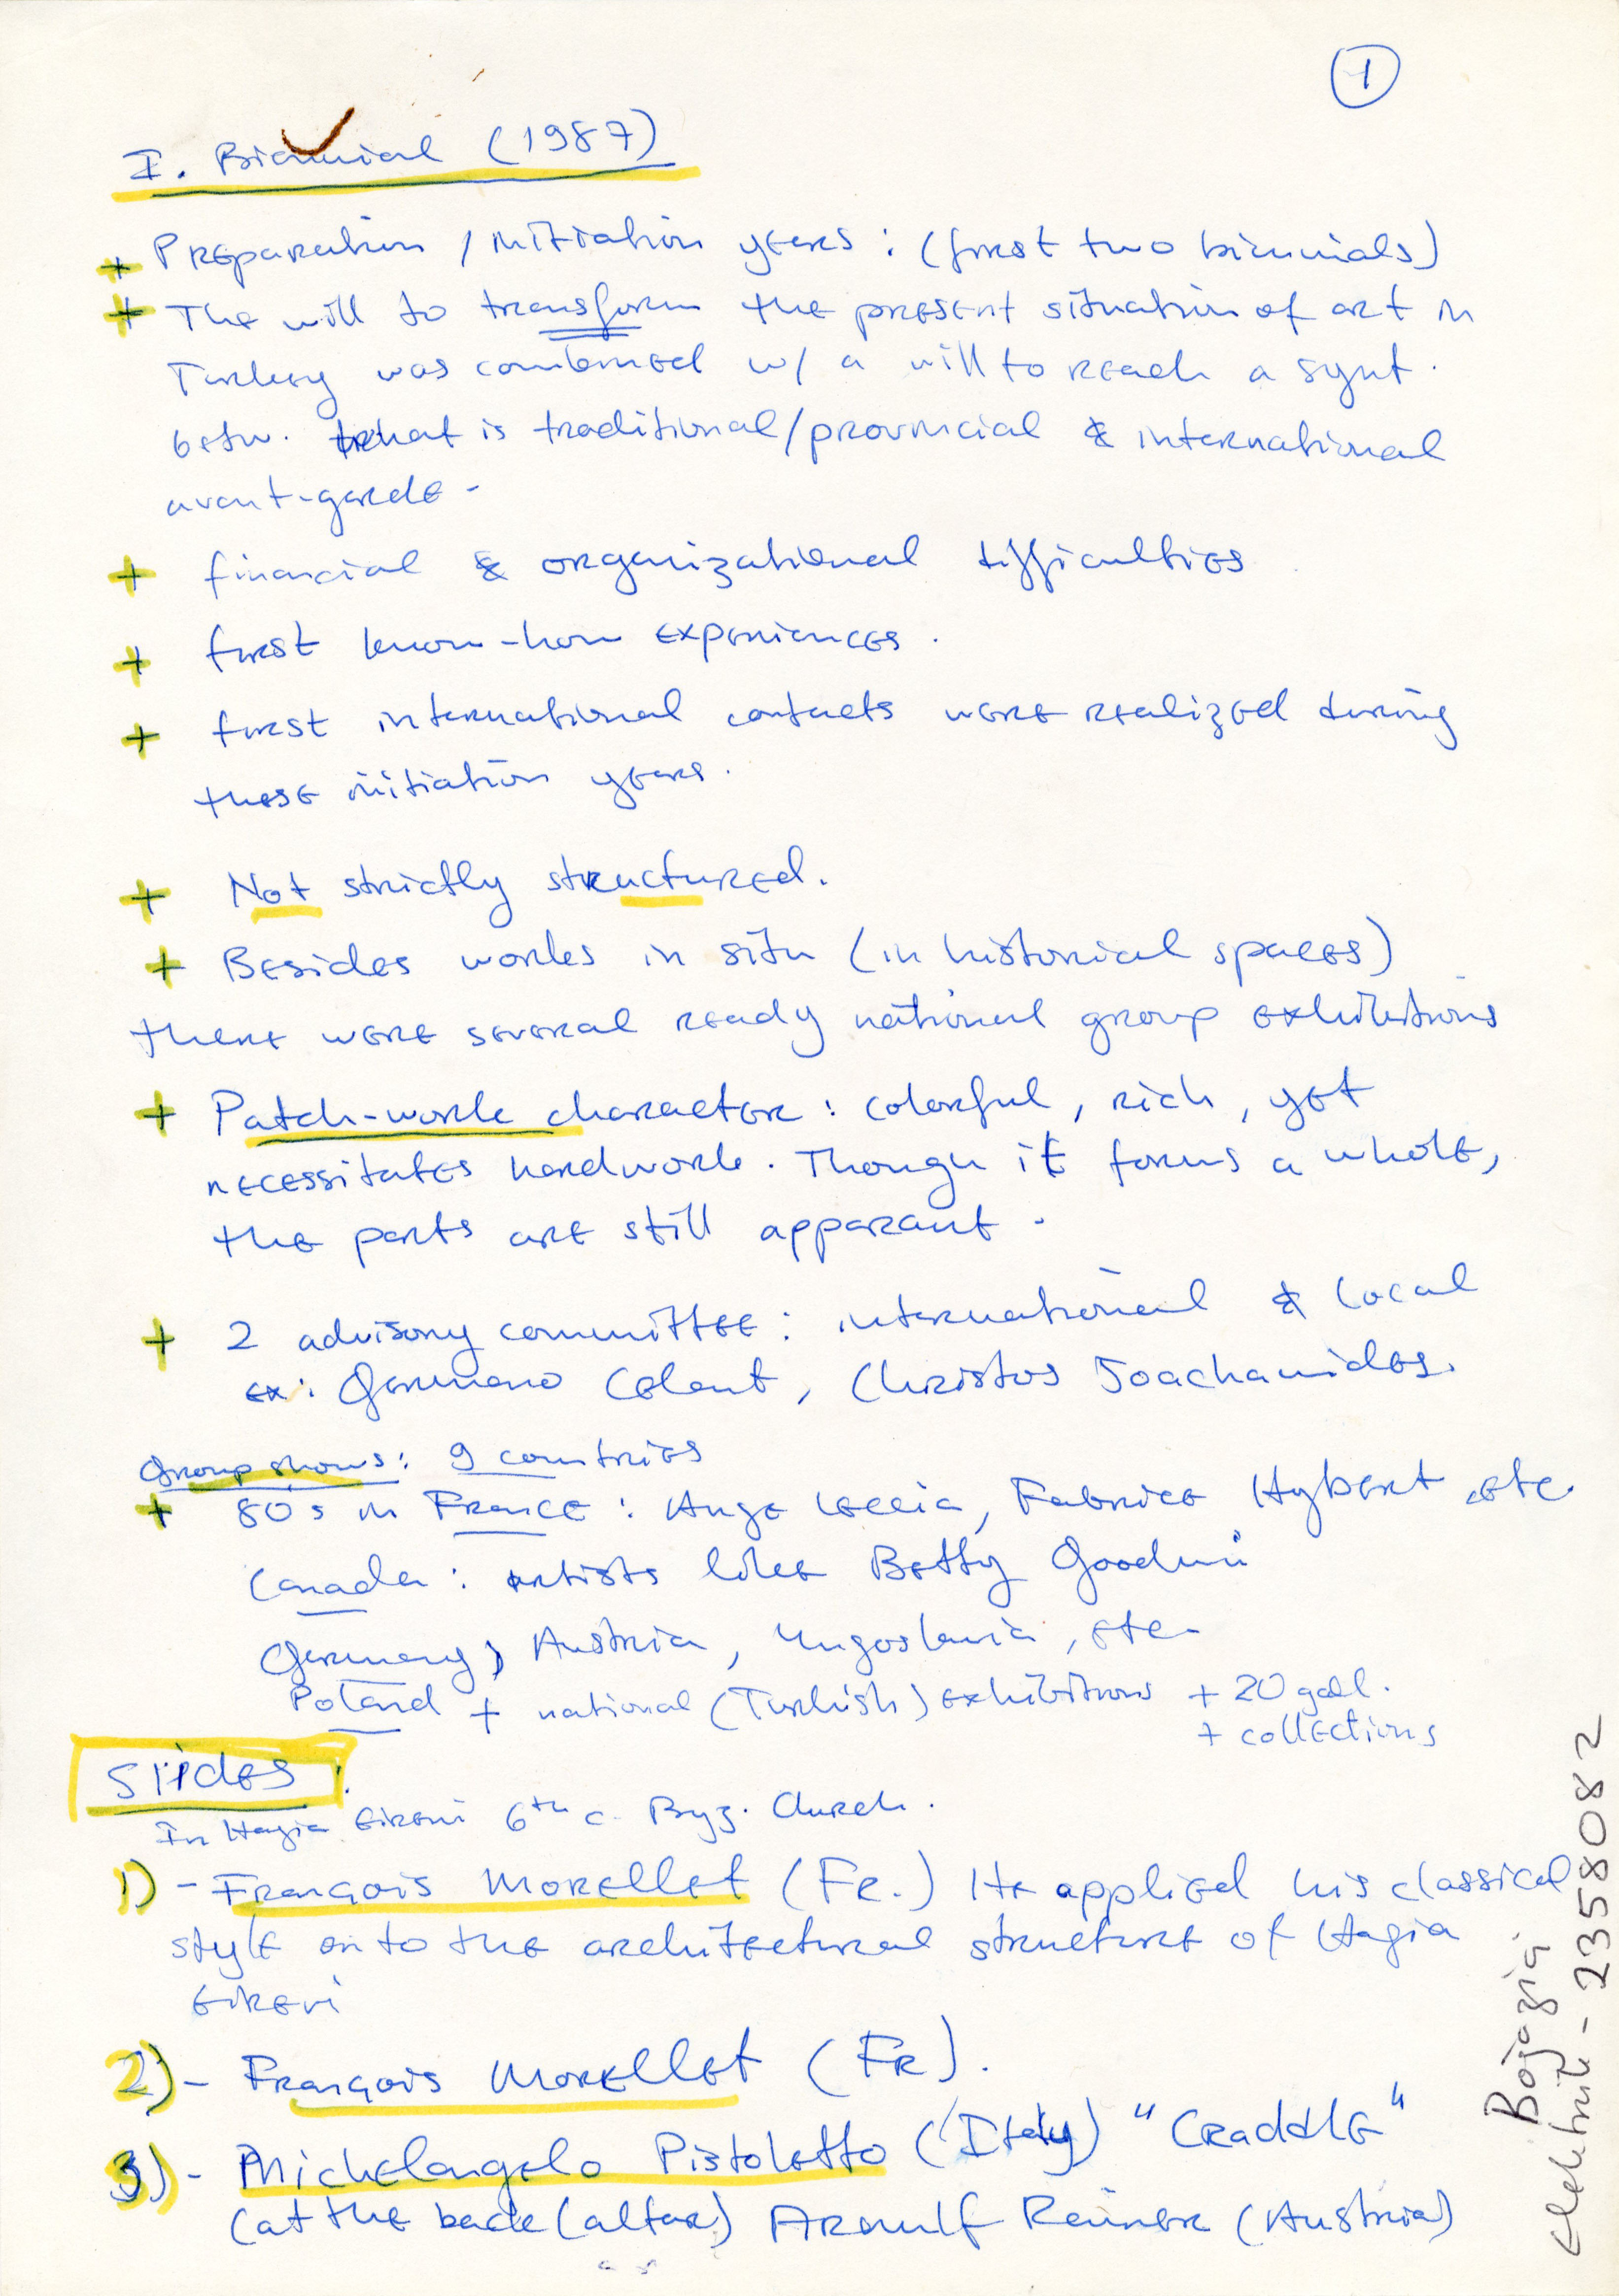 1
I. Biannial (1987)
+ Preparation / initiation years : (first two biennials)
+ The will to transform the present situation of art in
Turkey was combined w/ a will to reach a synt.
betw. what is traditional/provincial & international
avant-garde -
+ financial & organizational difficulties
+ first know-how experiences .
+ first international contacts were realized during
these initiation years.
+ Not strictly structured.
+ Besides works in situ (in historical spaces)
there were several ready national group exhibitions
+ Patch-work character : colorful, rich, yet
necessitates hardwork. Though it forms a whole,
the parts are still apparant .
+ 2 advisory committee : international & local
ex: Germano Celant, Christos Joachamides.
Group shows: 9 countries
+ 80s in France : Ange Leccia, Fabrice Hybert, etc.
Canada : artists like Betty Goodwin
Germany, Austria, Yugoslavia, etc.
Poland + national (Turkish) exhibitions + 20 gall.
+ collections
Slides
In Hagia Eireni 6th c. Byz. Church.
1) - François Morellet (Fr.) He applied his classical
style onto the architectural structure of Hagia
Eireni
2) - François Morellet (Fr).
3) - Michelangelo Pistoletto (Italy) "Craddle"
(at the back (altar) Arnulf Rainer (Austria)
Boğaziçi
elektrik - 2358082